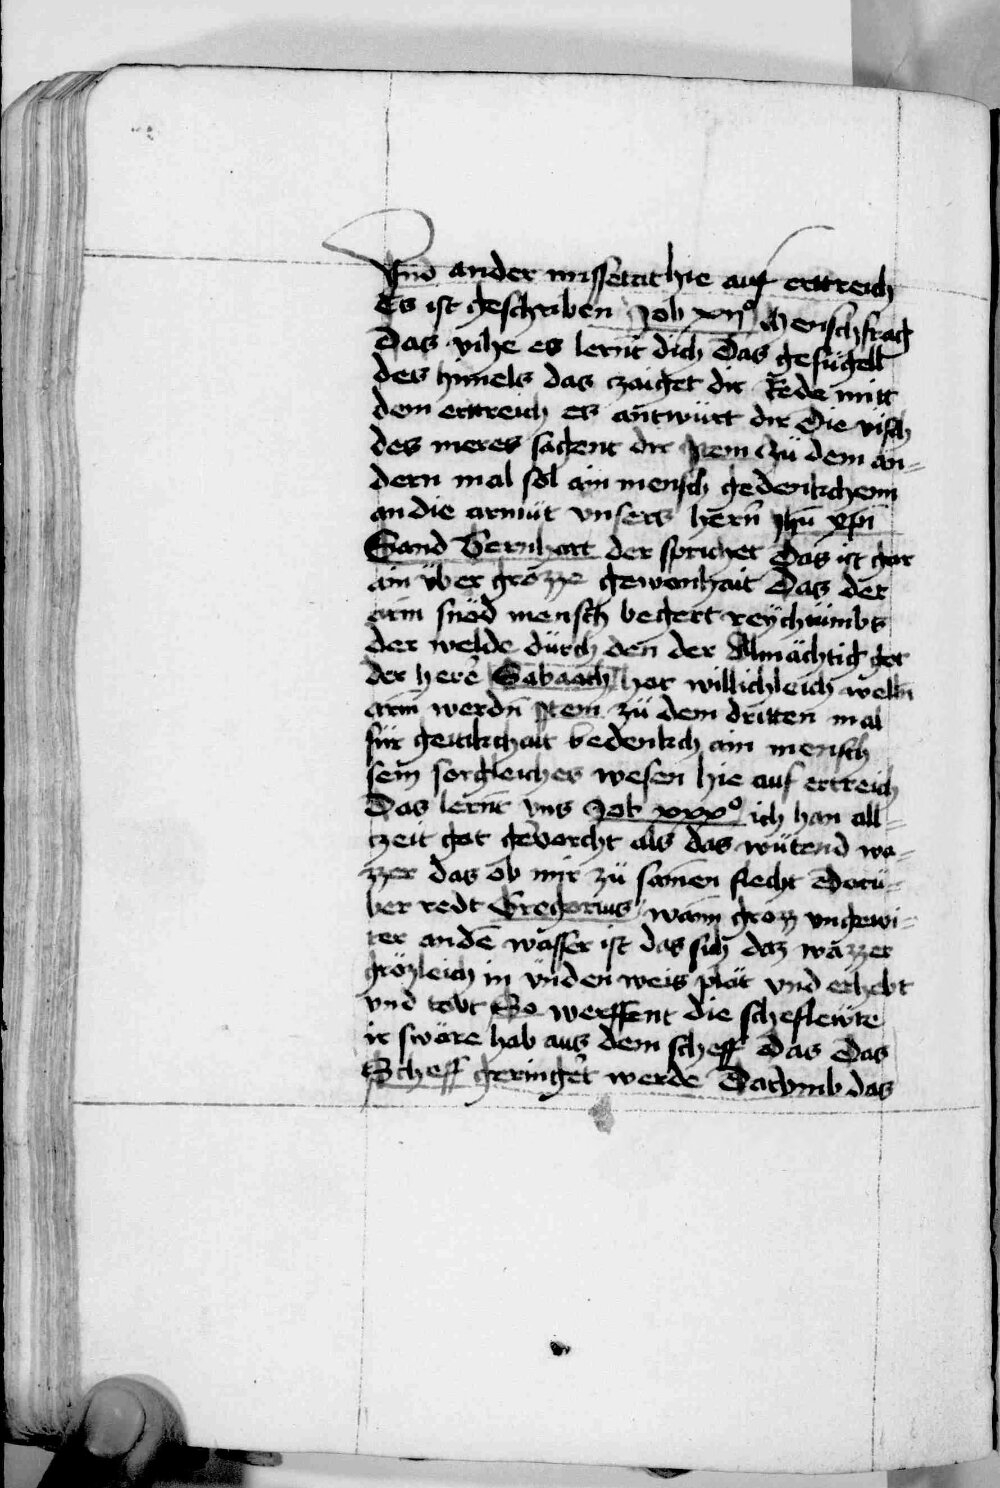 Vnd ander missetat hie auf erttreich
Es ist geschriben Job xijº Mensch frag
Das vihe es lernt dich Das gefügell
des himels das czaiget dir Rede mitt
dem erttreich es antwürt dir Die visch
des meres sagent dir Jtem Zü dem an=
dern mal sol ain mensch gedenkchenn
an die armüt vnsers herñ jhũ xp̃i
Sand Bernhart der sprichet Das ist gar
ain über grözze gewonhait Das der
arm snöd mensch begert reÿchtümbs
der welde dürch den der Almächtig got
der here Sabaoth hat willichleich welln
arm werdñ Jtem zü dem dritten mal
für geitikchait bedenkch ain mensch
sein sorgleiches wesen hie auf ertreich
Das lernt vns Job xxxº ich han all=
czeit got gevorcht als das wütend wa=
zzer das ob mir zü samen flecht Dorü=
ber redt Gregorius wann grozz vngewi=
ter an dē wasser ist das sich daz wazzer
grözleich in ünden weis plät vnd erhebt
vnd tobt So werffent die scheflewte
ir swäre hab aus dem scheff das das
Scheff geringet werde Darvmb das